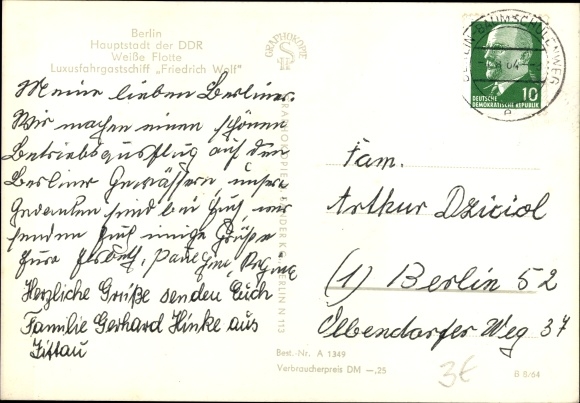 Berlin
Hauptstadt der DDR
Weiße Flotte
Luxusfahrgastschiff „Friedrich Wolf"
GRAPHOKOPIE
Meine lieben Berliner.
Wir machen einen schönen
Betriebsausflug auf den
Berliner Gewässern, unsere
Gedanken sind bei Euch, wir
senden Euch einige Grüße
Eure
Herzliche Grüße senden Euch
Familie Gerhard Hinke aus
Zittau
BERLIN N 113
BERLIN-BAUMSCHULENWEG
64
e
10
DEUTSCHE
DEMOKRATISCHE REPUBLIK
Fam.
Arthur Dziciol
(1) Berlin 52
Olbendorfer Weg 37
Best.-Nr. A 1349
Verbraucherpreis DM —,25
3€
B 8/64